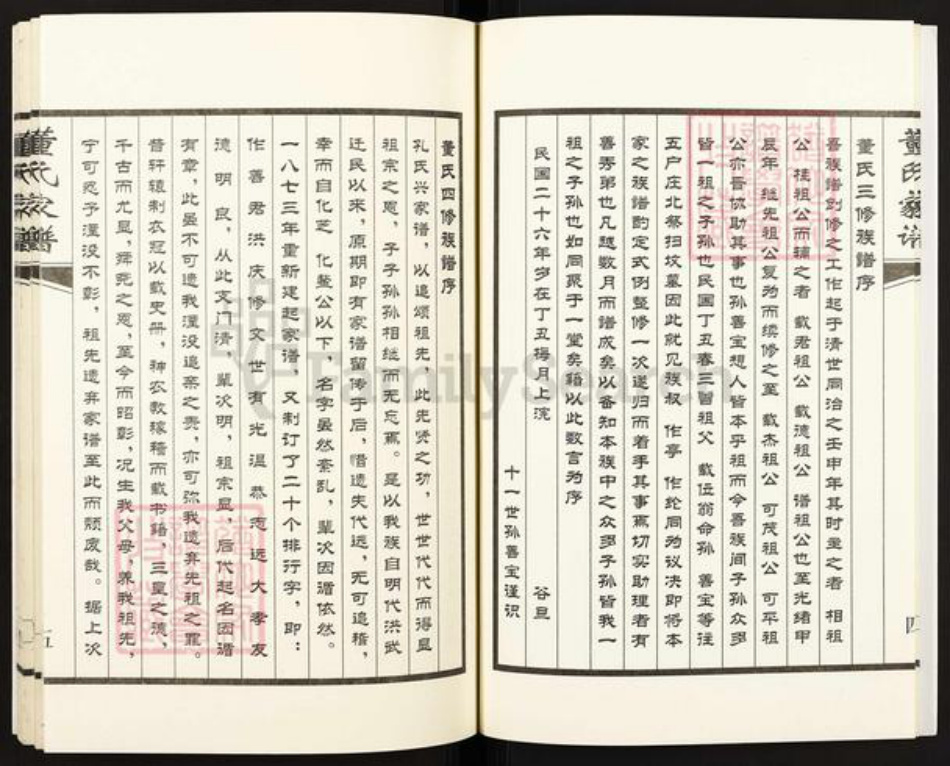 董氏三修族譜序
吾族譜創修之工作起于清世同治之壬申年其时董之者 相祖
公 桂祖公而辅之者 载君祖公 载德祖公 谱祖公也至光绪甲
辰年 继先祖公复为而续修之至 载杰祖公 可茂祖公 可平祖
公亦晋协助其事也孙善宝想人皆本乎祖而今吾族间子孙众多
皆一祖之子孙也民国丁丑春三旨祖父 载位翁命孙 善宝等往
五户庄北祭扫坟墓因此就见族叔 作亭 作纶同为议决即将本
家之族谱酌定式例整修一次遂归而着手其事焉切实助理者有
善秀弟也凡越数月而谱成矣以备知本族中之众多子孙皆我一
祖之子孙也如同聚于一堂矣籍以此数言为序
民国二十六年岁在丁丑梅月上浣 谷旦
十一世孙善宝谨识
四
董氏四修族譜序
孔氏兴家谱，以追颂祖先，此先贤之功，世世代代而得显
祖宗之恩，子子孙孙相继而无忘焉。是以我族自明代洪武
迁民以来，原期即有家谱留传于后，惜遗失代远，无可追稽，
幸而自化芝 化鳌公以下，名字虽然紊乱，辈次因循依然。
一八七三年重新建起家谱，又制订了二十个排行字，即：
作善君洪庆 修文世有光 温恭志远大 孝友
德明良，从此文门清，辈次明，祖宗显，后代起名因循
有章，此虽不可遗我湮没追亲之责，亦可弥我遗弃先祖之罪。
昔轩辕制衣冠以载史册，神农教稼穑而载书籍，三皇之德，
千古而尤显，舜尧之恩，至今而昭彰，况生我父母，养我祖先，
宁可忍子湮没不彰，祖先遗弃家谱至此而颓废哉。据上次
五
董氏族譜
FamilySearch